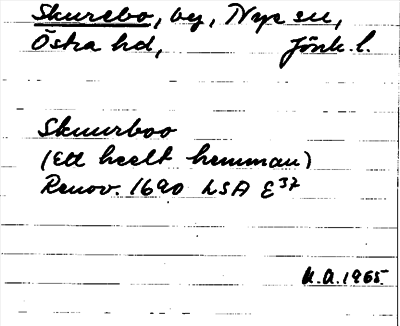 Skurebo, by, Nye sn,
Östra hd, Jönk. l.
Skuurboo
(Ett heelt hemman)
Renov. 1690 LSA E37
U.A. 1965.